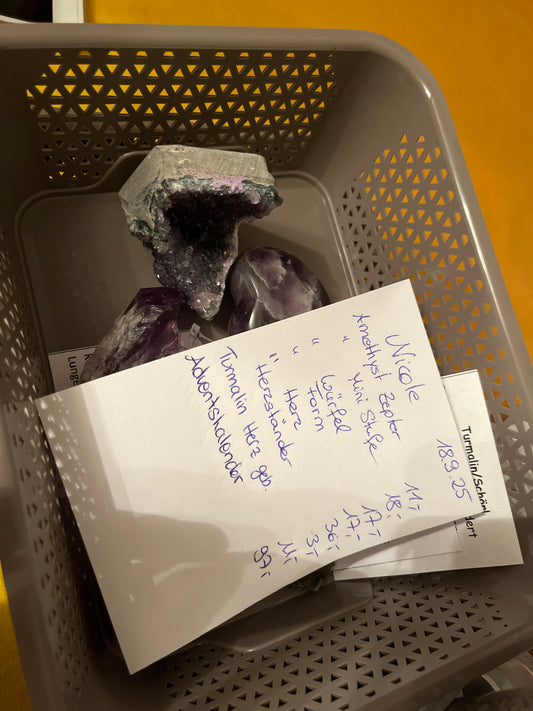 Nicole 18.9.25
Amethyst Zepter 11,-
" Mini Stufe 18,-
" Würfel 17,-
Form 17,-
" Herz 36,-
" Herzständer 3,-
Turmalin Herz geb. 11,-
Adventskalender 97,-
Turmalin/Schörl
dert
Lunge